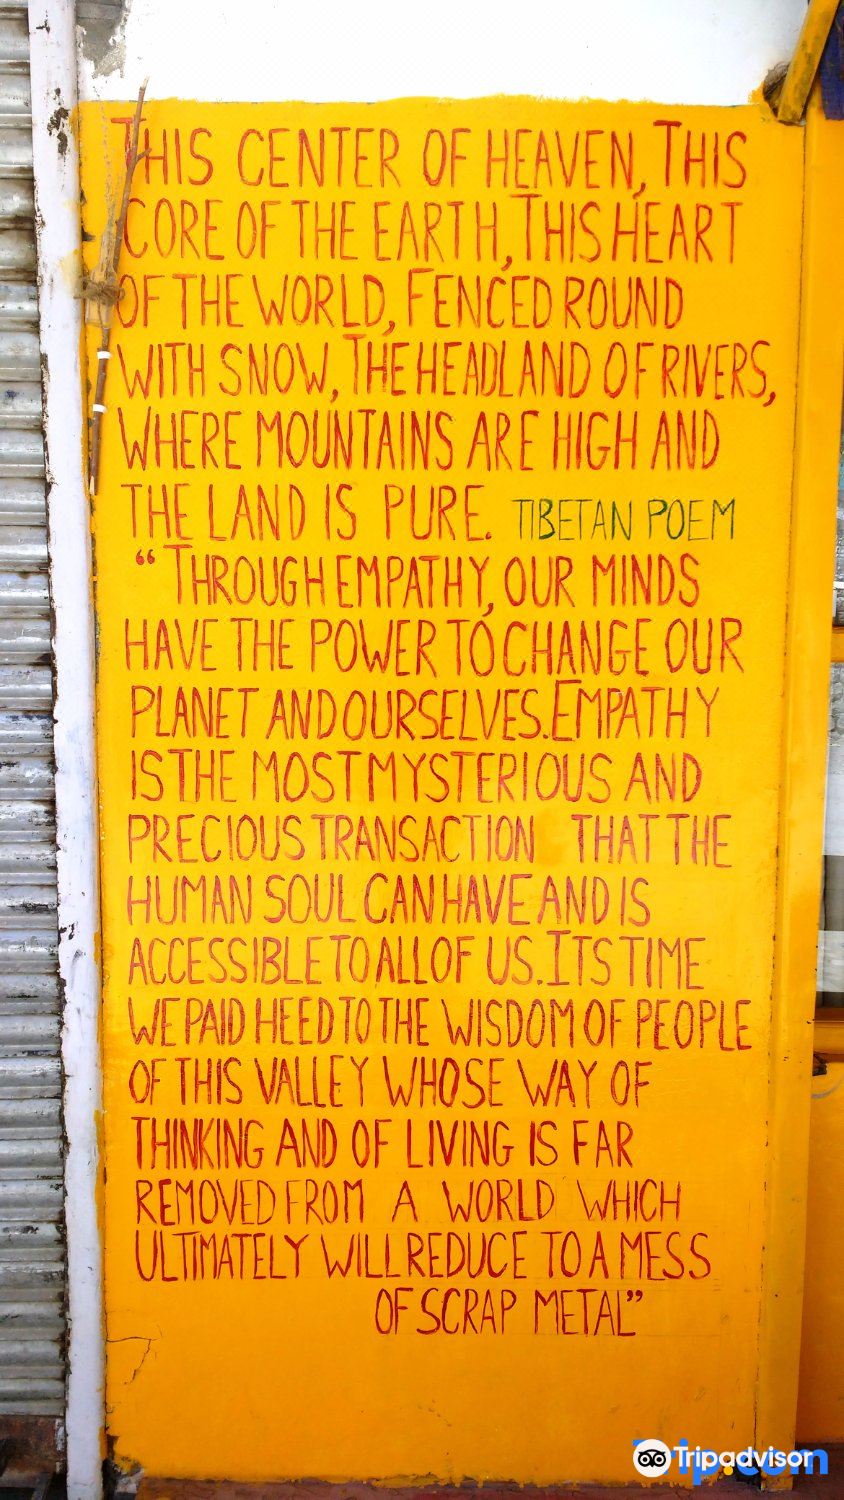 THIS CENTER OF HEAVEN, THIS
CORE OF THE EARTH, THIS HEART
OF THE WORLD, FENCED ROUND
WITH SNOW, THE HEADLAND OF RIVERS,
WHERE MOUNTAINS ARE HIGH AND
THE LAND IS PURE. TIBETAN POEM
"THROUGH EMPATHY, OUR MINDS
HAVE THE POWER TO CHANGE OUR
PLANET AND OURSELVES. EMPATHY
IS THE MOST MYSTERIOUS AND
PRECIOUS TRANSACTION THAT THE
HUMAN SOUL CAN HAVE AND IS
ACCESSIBLE TO ALL OF US. ITS TIME
WE PAID HEED TO THE WISDOM OF PEOPLE
OF THIS VALLEY WHOSE WAY OF
THINKING AND OF LIVING IS FAR
REMOVED FROM A WORLD WHICH
ULTIMATELY WILL REDUCE TO A MESS
OF SCRAP METAL"
Trip.com
Tripadvisor